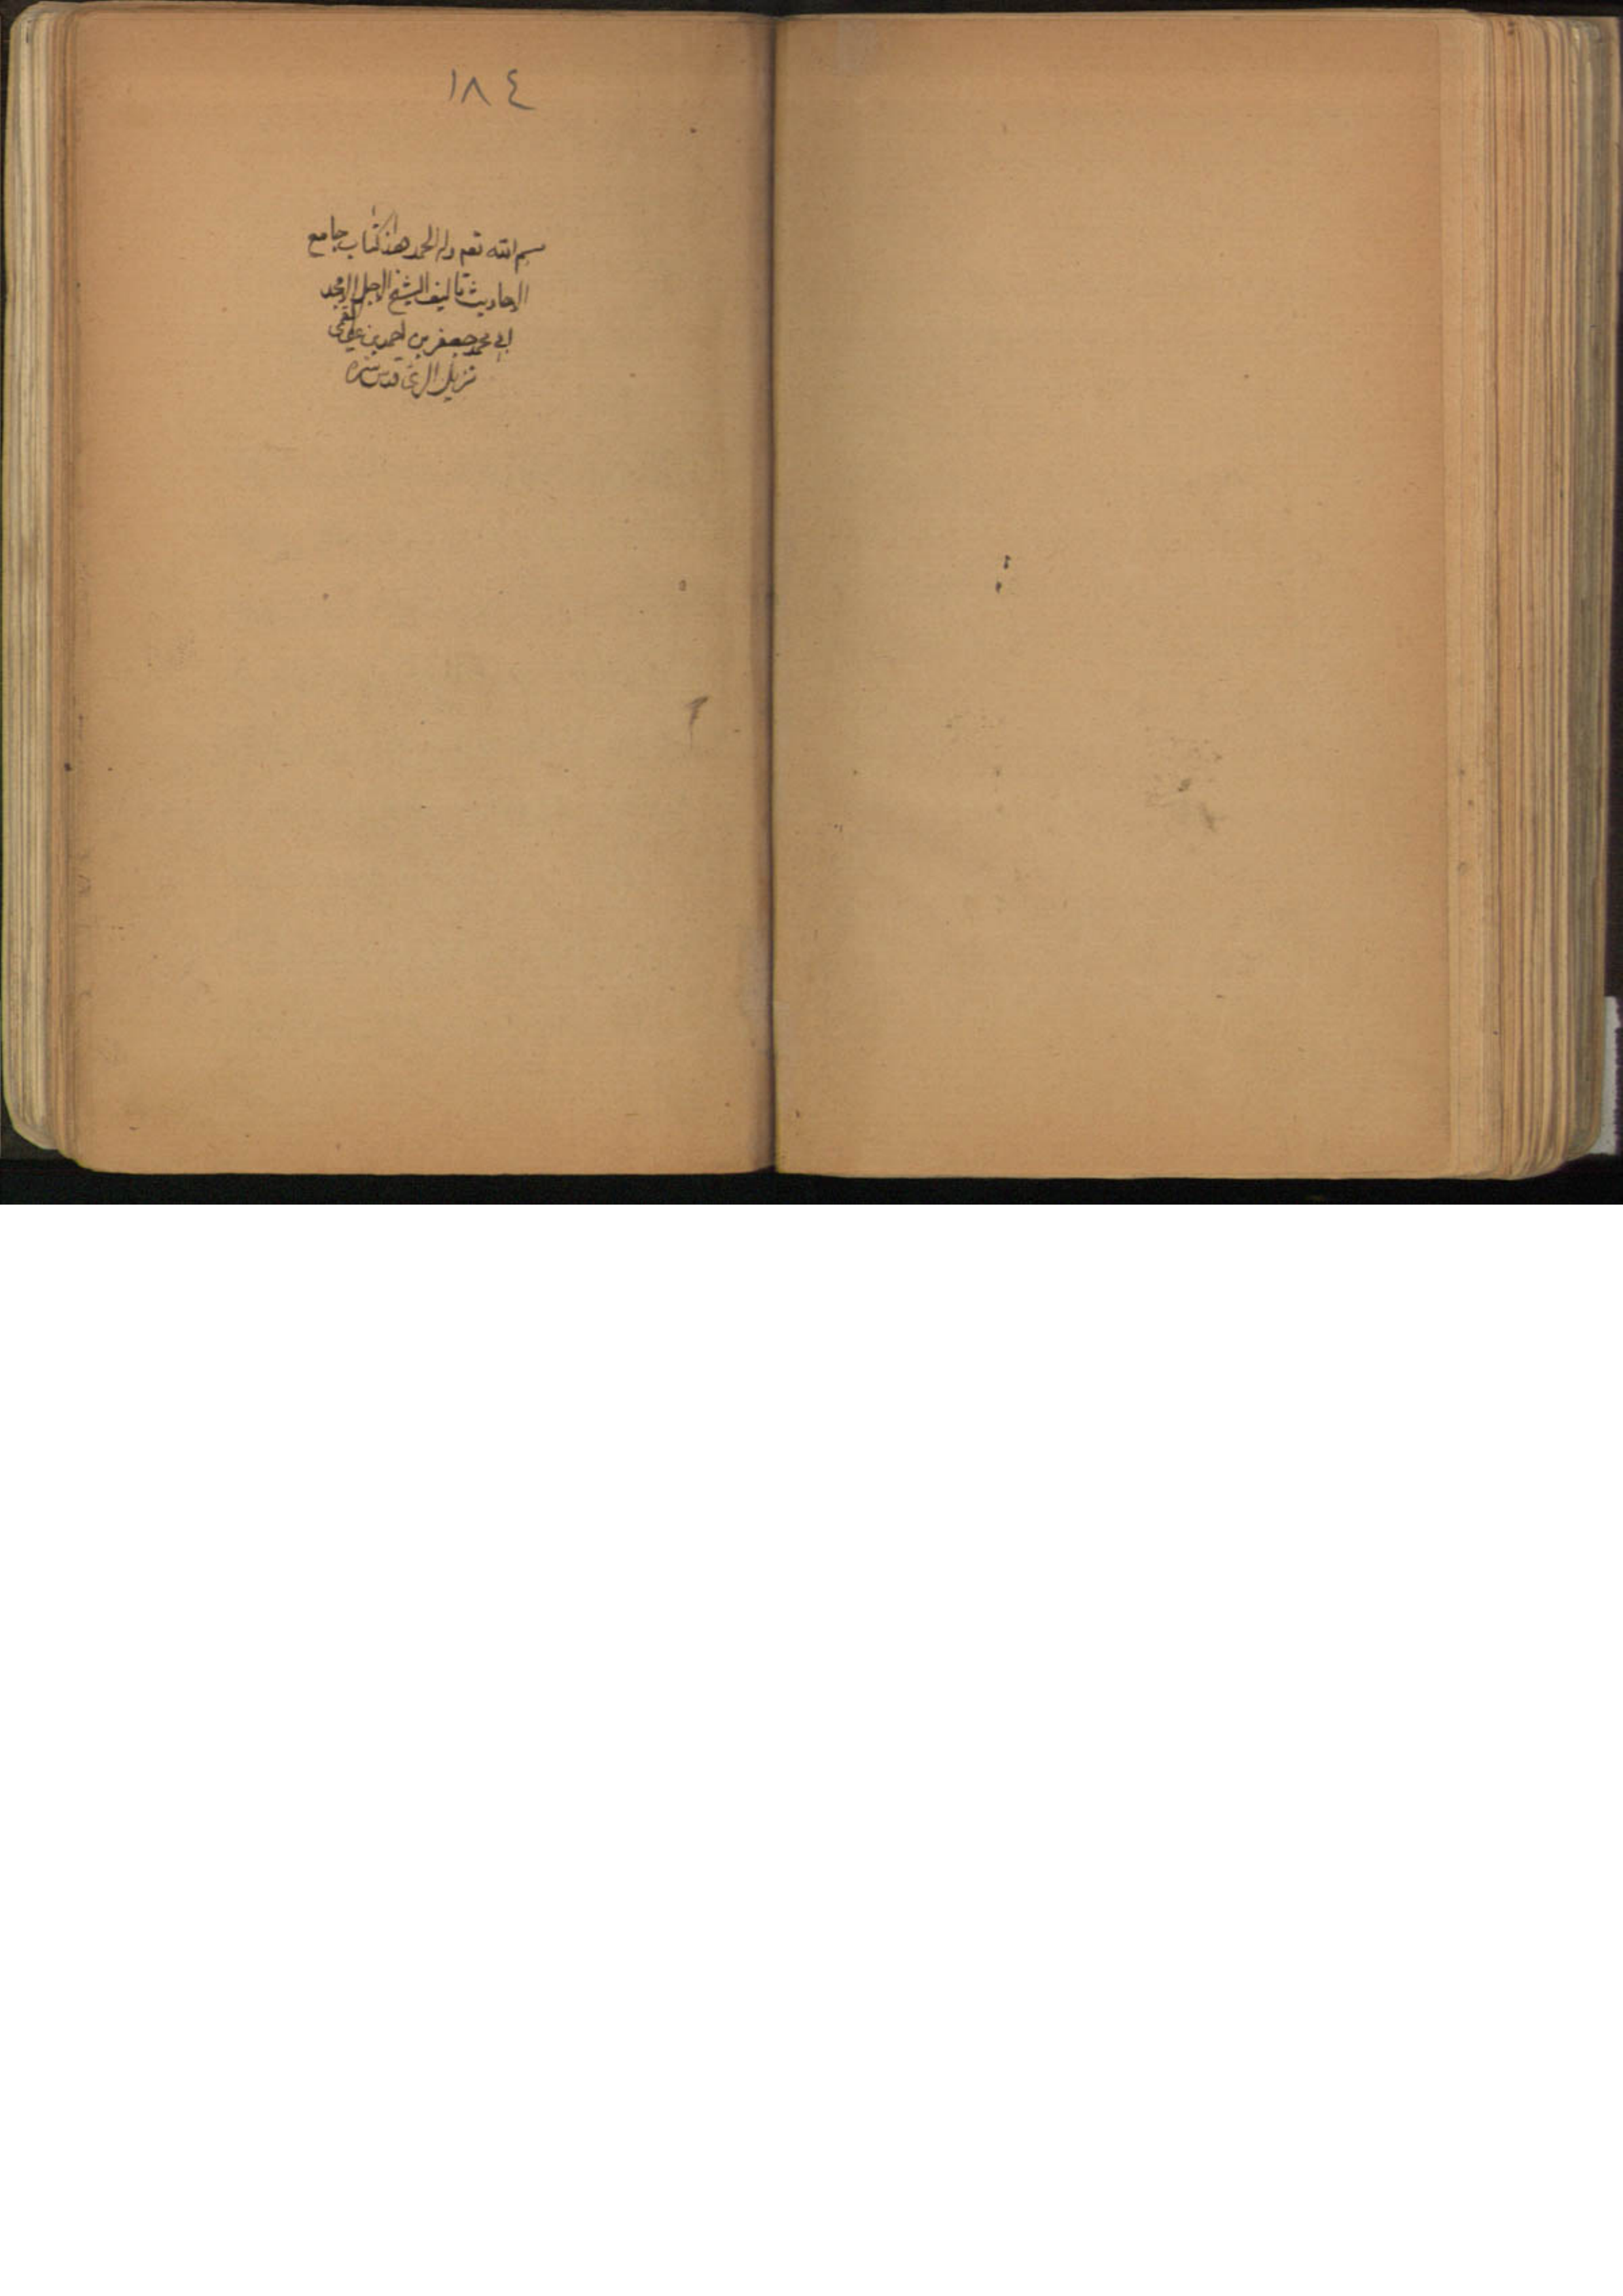 ١٨٤
بسم الله تعم وله الحمد هذا كتاب جامع
الاحاديث تاليف الشيخ الاجل الامجد
ابي محمد جعفر بن احمد بن علي القمي
نزيل الري قدس سره